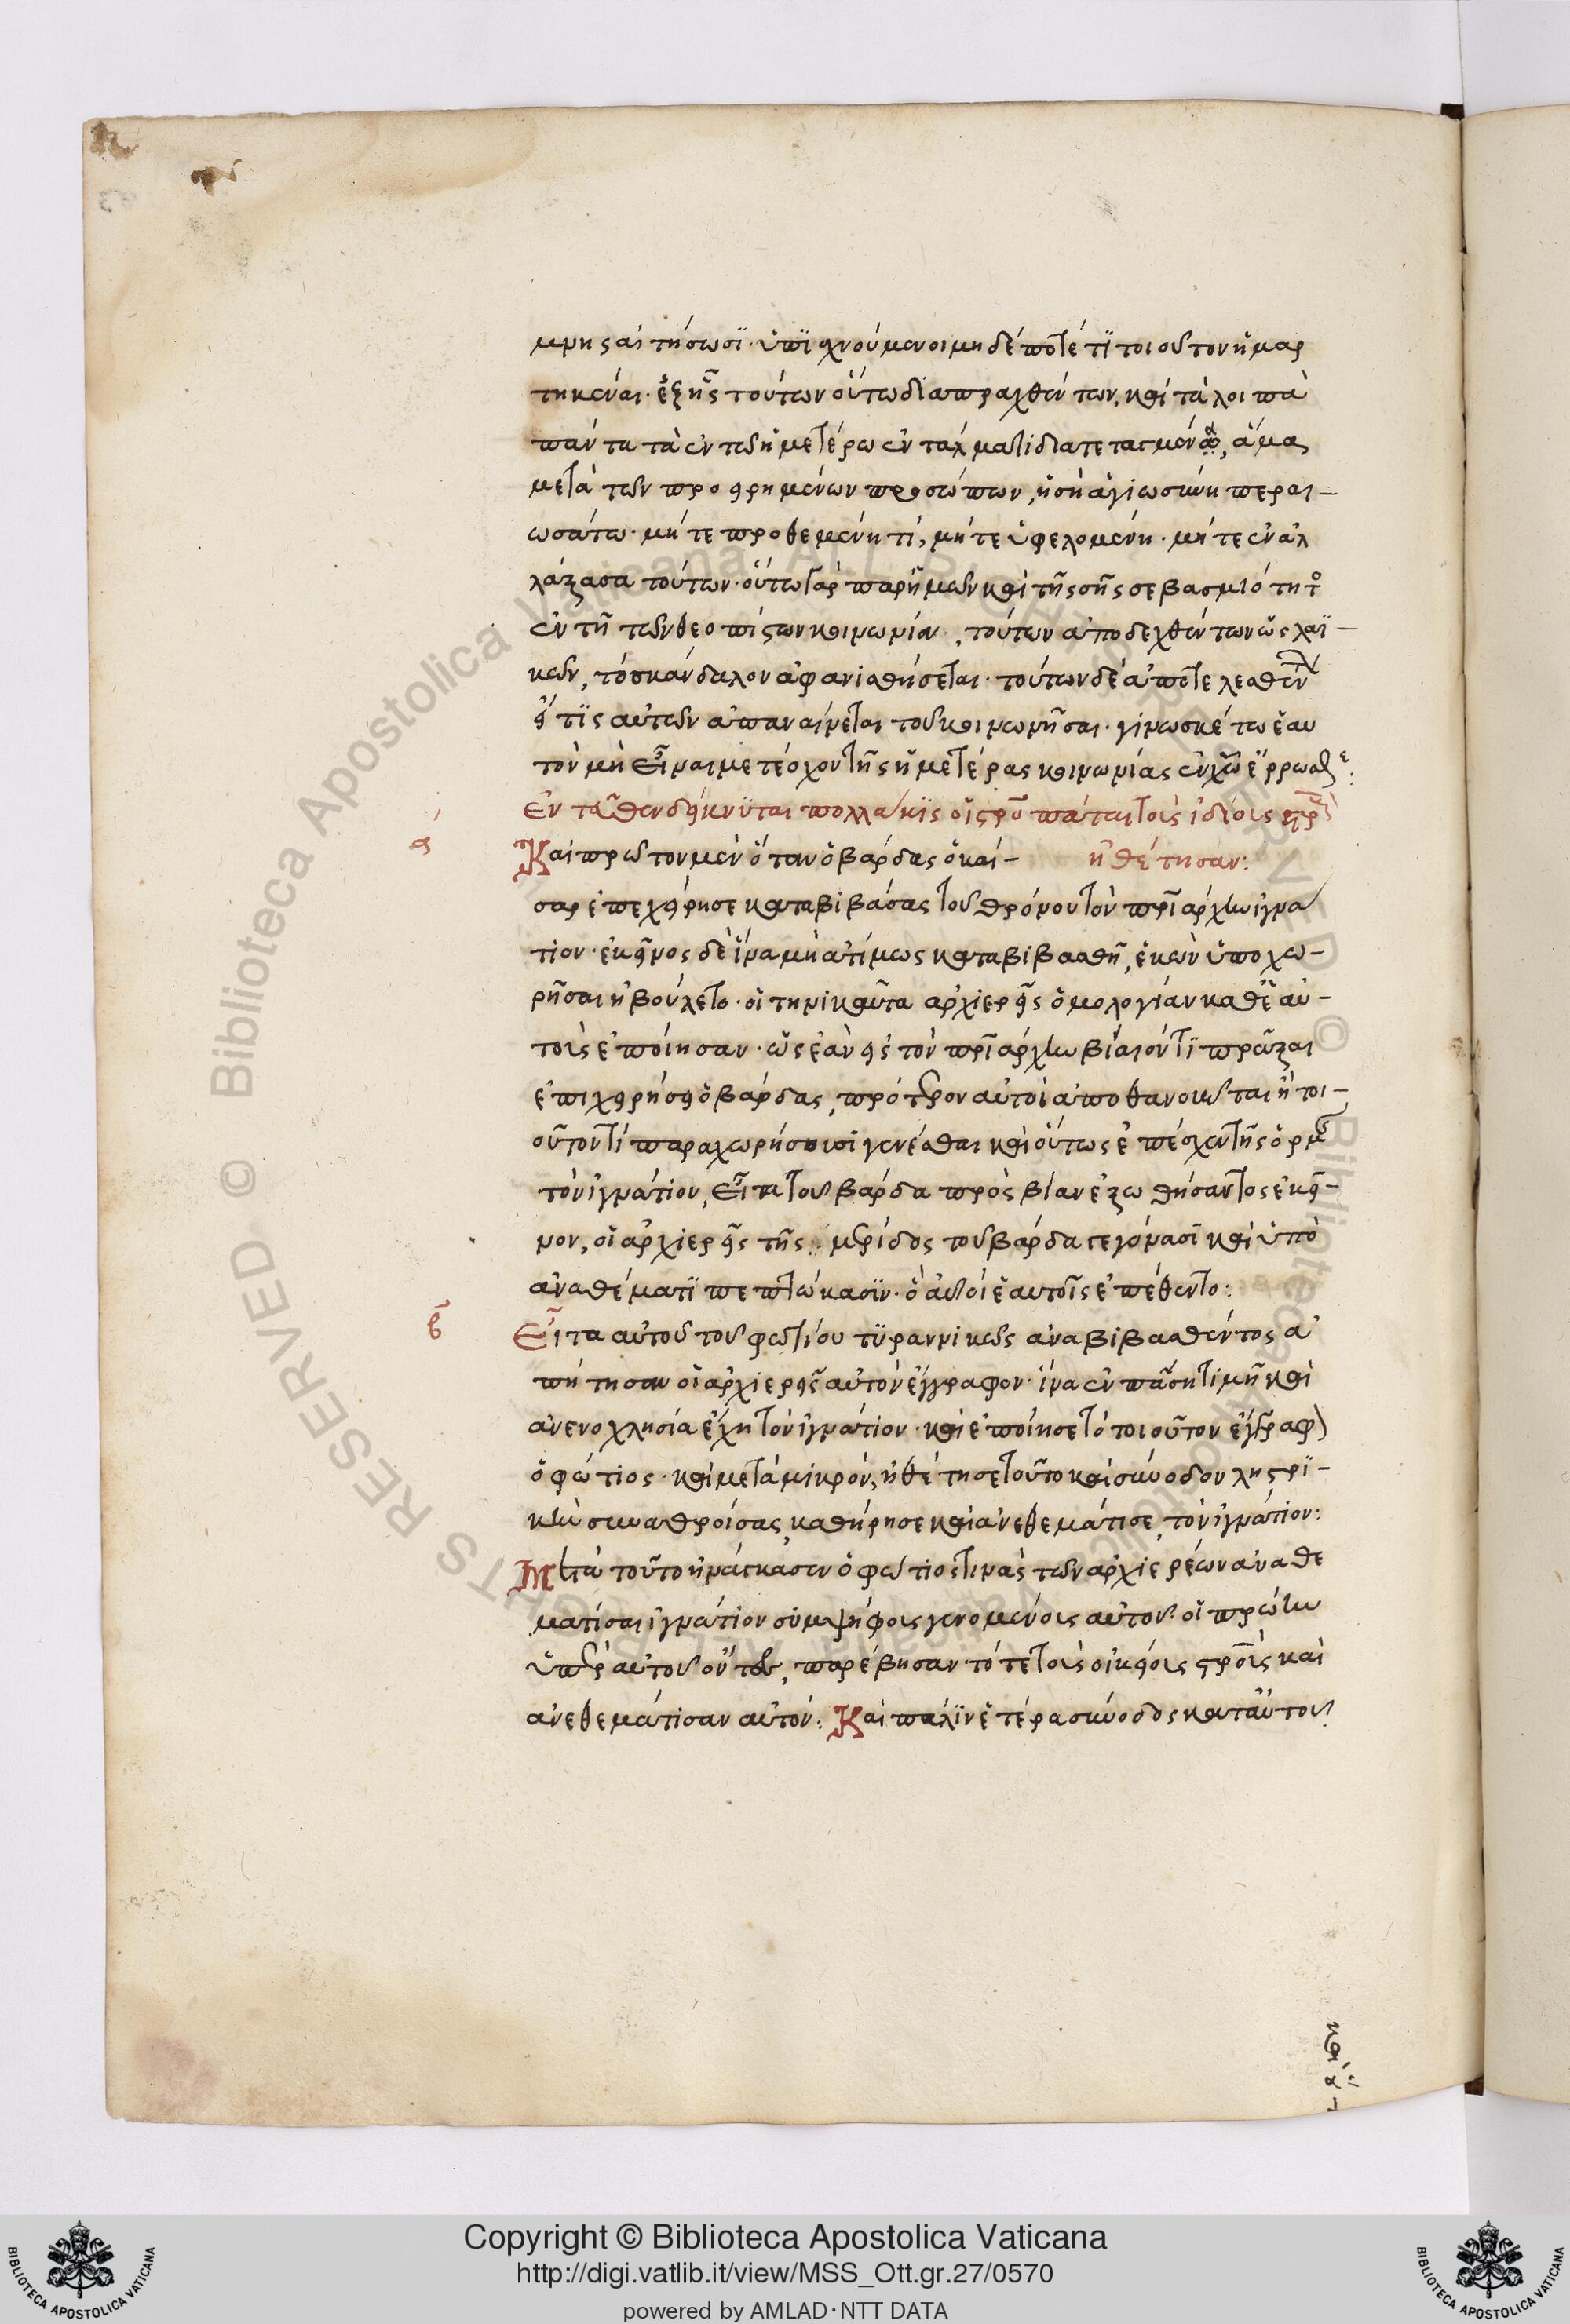 μνης αἰτήσωσϊ· ὑπϊσχνούμενοι μηδέποτέ τϊ τοιοῦτον ἡμαρ
τηκέναι· ἑξῆς τούτων οὕτω διαπραχθέντων, καὶ τὰ λοιπὰ
πάντα τὰ ἐν τῶ ἡμετέρω ἐνταλματι διατεταγμένα, ἅμα
μετὰ τῶν προειρημένων προσώπων, ἡ σὴ ἁγιωσύνη περαι–
ωσάτω· μήτε προθεμένη τί, μήτε ὑφελομένη· μήτε ἐναλ
λάξασα τούτων· οὕτω γὰρ παρ' ἡμῶν καὶ τῆς σῆς σεβασμιότητο
ἐν τῆ τῶν θεοπίστων κοινωνία, τούτων ἀποδεχθέντων ὡς λαϊ–
κῶν, τὸ σκάνδαλον ἀφανισθήσεται· τούτων δὲ ἀποτελεσθέντων
εἴ τϊς αὐτῶν ἀπαναίνεται τοῦ κοινωνῆσαι· γινωσκέτω ἑαυ
τὸν μὴ εἶναι μετέοχον τῆς ἡμετέρας κοινωνίας ἐν χω ἔρρωσθε:
Ἐνταῦθεν δείκνϋται πολλάκϊς οἱ στρο πάται τοὶς ἰδίοις στρ
α
Καὶ πρῶτον μὲν ὅταν ὁ βάρδας ὁ καί– ἠθέτησαν:
σαρ ἐπεχείρησε καταβιβάσας τοῦ θρόνου τὸν πριάρχην ἰγνά
τιον· ἐκεῖνος δὲ ἵνα μὴ ἀτίμως καταβιβασθῆ, ἑκὼν ὑποχω–
ρῆσαι ἠβούλετο· οἱ τηνικαῦτα ἀρχιερεῖς ὁμολογίαν καθ' ἑαυ–
τοὶς ἐποίησαν· ὡς ἐὰν εἰς τὸν πριάρχην βίαιόν τϊ πρᾶξαι
ἐπιχειρήσει ὁ βάρδας, πρότερον αὐτοὶ ἀποθανοῦνται ἢ τοι–
οῦτον τί παραχωρήσωσϊ γενέσθαι καὶ οὕτως ἐπέσχεν τῆς ὁρμῆς
τὸν ἰγνάτιον, Εἶτα τοῦ βάρδα πρὸς βίαν ἐξωθήσαντος ἐκεῖ–
νον, οἱ ἀρχιερεῖς τῆς μερίδος τοῦ βάρδα γεγόνασϊ καὶ ὑπὸ
ἀναθέματϊ πεπτώκασϊν· ὃ αὐτοὶ ἑαυτοῖς ἐπέθεντο:
β
Εἶτα αὐτοῦ τοῦ φωτίου τϋραννικῶς ἀναβιβασθέντος ἀ
πήτησαν οἱ ἀρχιερεῖς αὐτὸν ἔγγραφον· ἵνα ἐν πάση τιμῆ καὶ
ἀνενοχλησία ἔχη τὸν ἰγνάτιον· καὶ ἐποίησε τὸ τοιοῦτον ἔγγραφ
ὁ φώτιος· καὶ μετὰ μικρόν, ἠθέτησε τοῦτο καὶ σύνοδον ληστρϊ–
κὴν συναθροίσας, καθήρησε καὶ ἀνεθεμάτισε, τὸν ἰγνάτιον:
Μετὰ τοῦτο ἠνάγκασεν ὁ φώτιος τινὰς τῶν ἀρχιερέων ἀναθε
ματίσαι ἰγνάτιον σύμψήφοις γενομένοις αὐτοῦ οἳ πρώην
ὑπὲρ αὐτοῦ ὄντες, παρέβησαν τότε τοὶς οἰκείοις στροῖς καὶ
ἀνεθεμάτισαν αὐτόν: Καὶ πάλϊν ἑτέρα σύνοδος κατ' αὐτοῦ
Copyright © Biblioteca Apostolica Vaticana
http://digi.vatlib.it/view/MSS_Ott.gr.27/0570
powered by AMLAD·NTT DATA